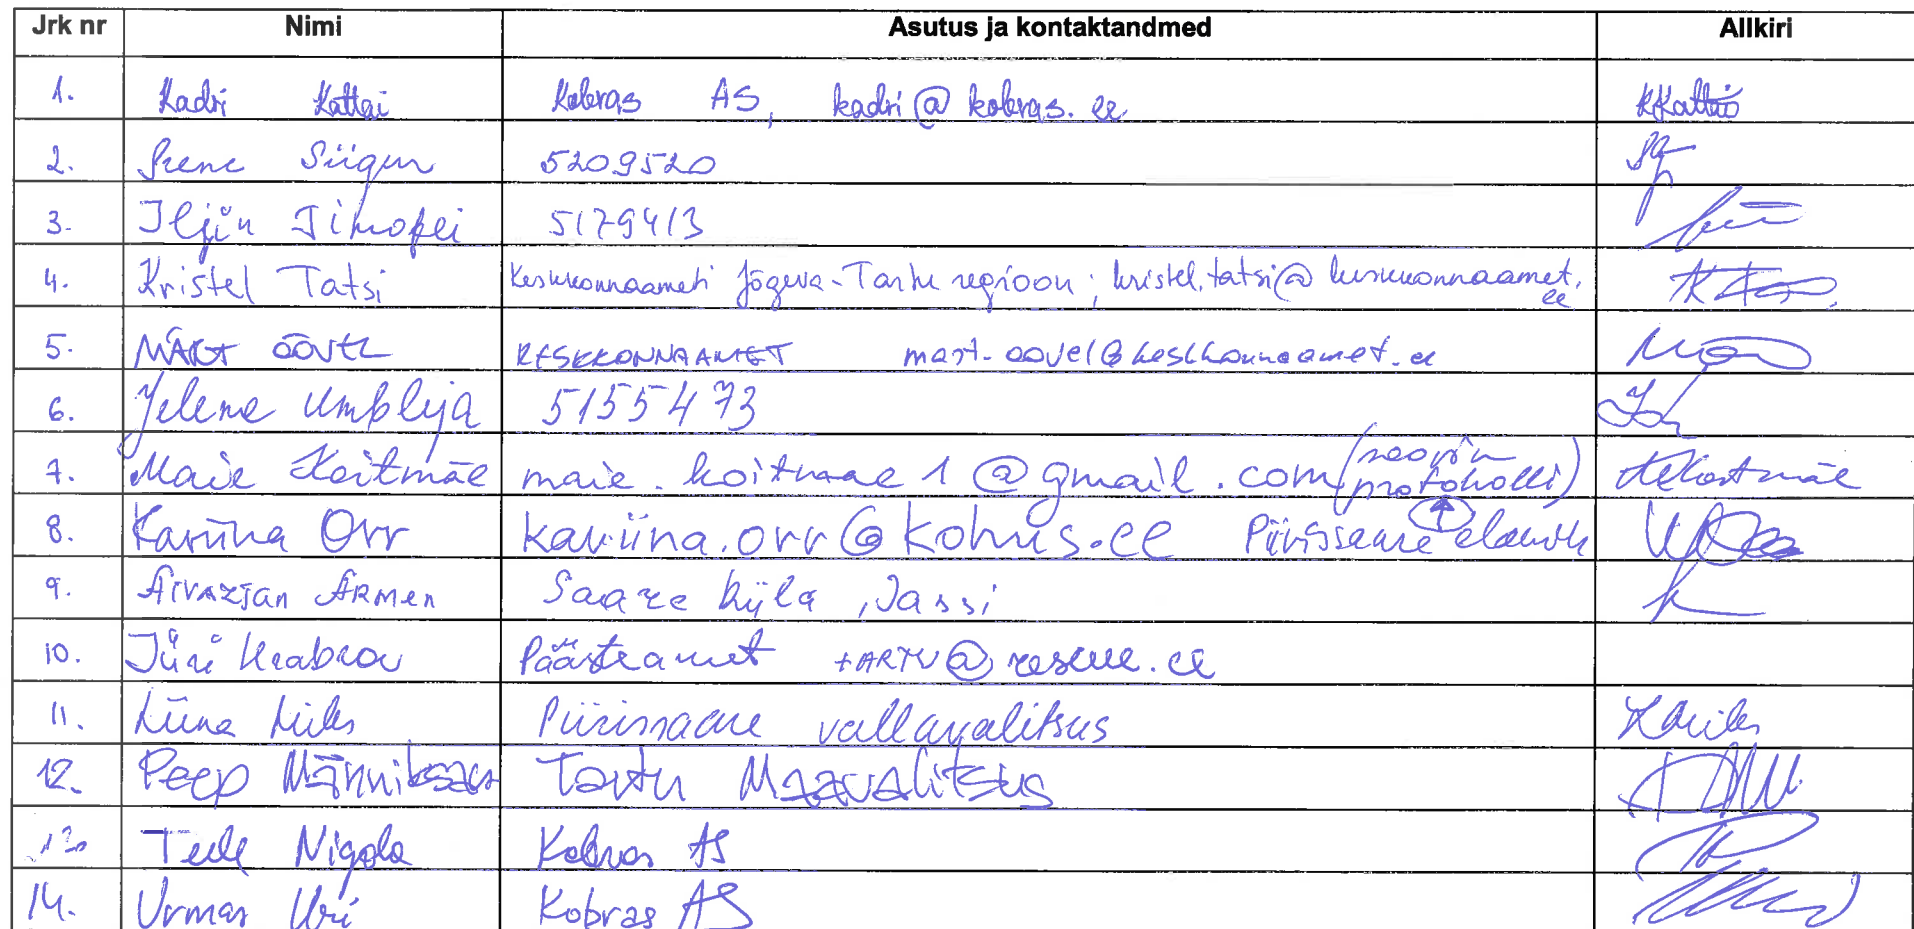 Jrk nr Nimi Asutus ja kontaktandmed Allkiri
1. Kadri Kattai Kobras AS, kadri@kobras.ee KKattai
2. Irene Siigur 5209520
3. Iljin Timofei 5179413
4. Kristel Tatsi Keskkonnaameti Jõgeva-Tartu regioon; kristel.tatsi@keskkonnaamet.ee
5. MÄRT ÖÖVEL KESKKONNAAMET mart.oovel@keskkonnaamet.ee
6. Jelena Umblija 5155473
7. Maie Koitmäe maie.koitmae1@gmail.com (soovin protokolli) MKoitmäe
8. Kariina Orr kariina.orr@kohus.ee Piirissaare elanik
9. Aivazjan Armen Saare küla, Jassi
10. Jüri Krabrov Päästeamet tARTU@rescue.ee
11. Liina Miks Piirissaare vallavalitsus LMiks
12. Peep Männiksaar Tartu Maavalitsus
13. Teele Nigola Kobras AS
14. Urmas Uri Kobras AS